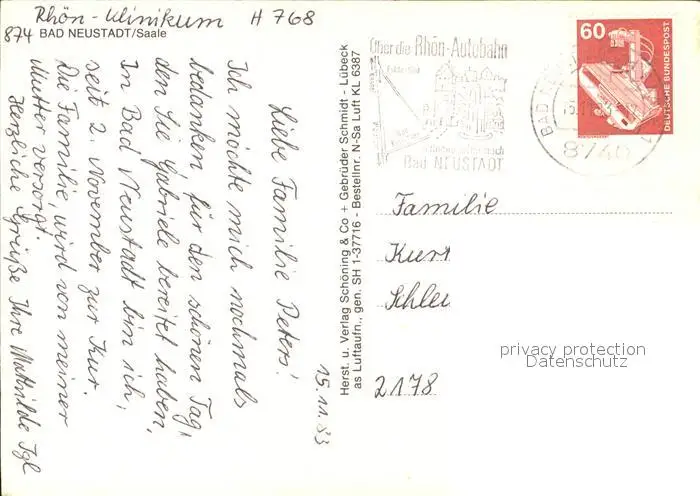 Rhön-Klinikum H 768
874 BAD NEUSTADT/Saale
Liebe Familie Peters!
Ich möchte mich nochmals
bedanken für den schönen Tag,
den Sie Gabriele bereitet haben,
In Bad Neustadt bin ich,
seit 2. November zur Kur.
Die Familie, wird von meiner
Mutter versorgt.
Herzliche Grüße Ihre Mathilde Igl
15.11.83
Herst. u. Verlag Schöning & Co + Gebrüder Schmidt - Lübeck
as Luftaufn., gen. SH 1-37716 - Bestellnr. N-Sa Luft KL 6387
Über die Rhön-Autobahn
nach
Bad NEUSTADT
60
DEUTSCHE BUNDESPOST
BAD
8740
Familie
Kurt
Schlei
2178
privacy protection
Datenschutz